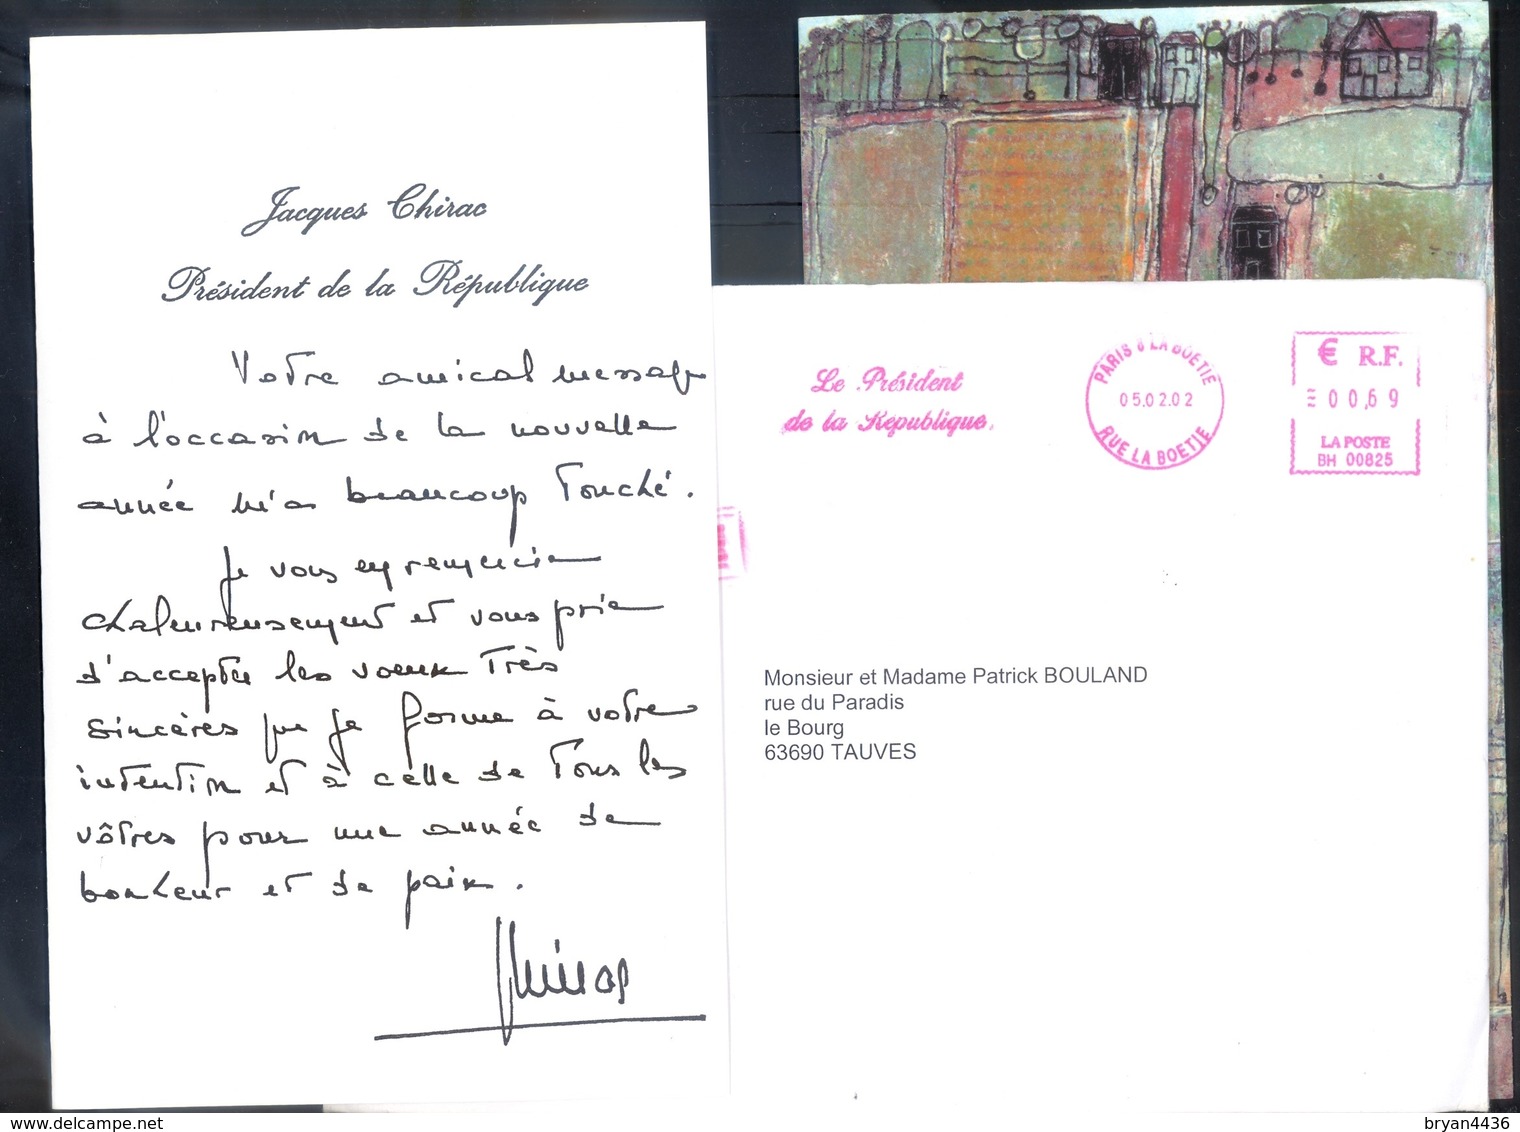 Jacques Chirac
Président de la République
Votre amical message
à l'occasion de la nouvelle
année m'a beaucoup touché.
Je vous en remercie
chaleureusement et vous prie
d'accepter les voeux très
sincères que je forme à votre
intention et à celle de tous les
vôtres pour une année de
bonheur et de paix.
Le Président
de la République
PARIS 8 LA BOETIE
05.02.02
RUE LA BOETIE
€ R.F.
00,69
LA POSTE
BH 00825
Monsieur et Madame Patrick BOULAND
rue du Paradis
le Bourg
63690 TAUVES
www.delcampe.net
bryan4436